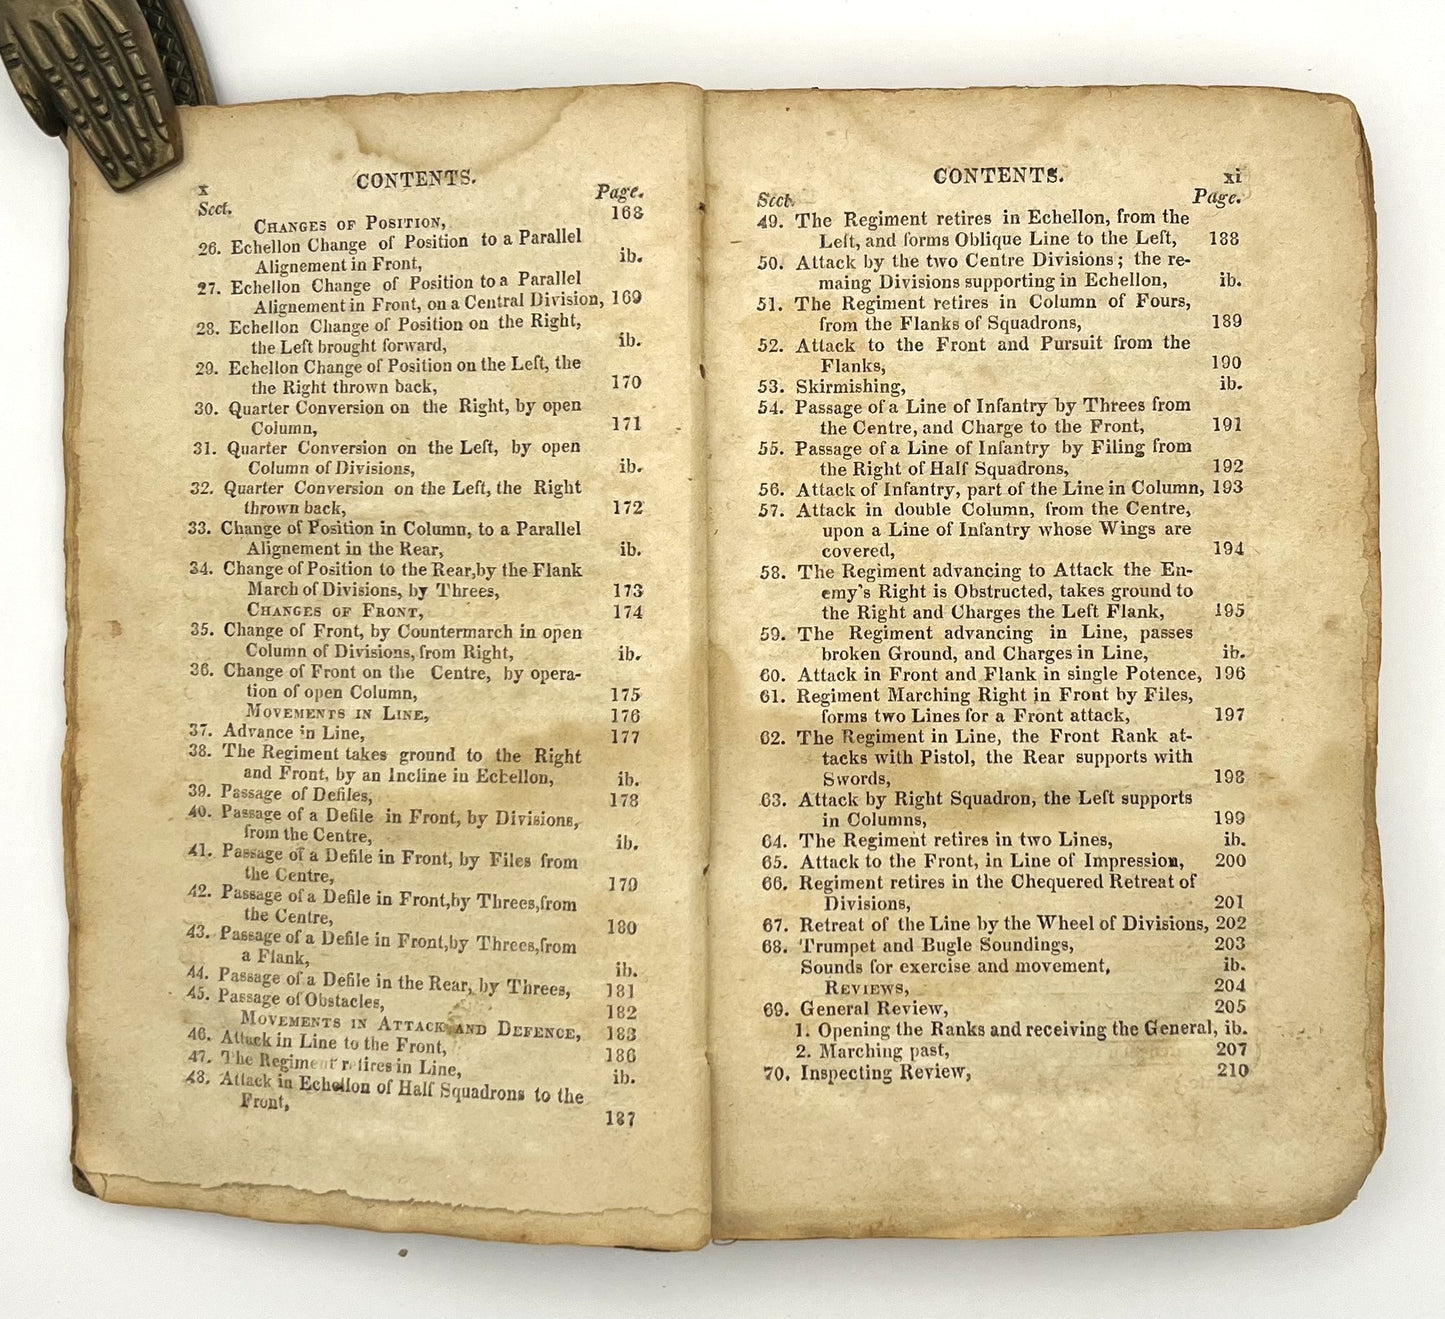 x
CONTENTS.
Sect. Page.
CHANGES OF POSITION, 168
26. Echellon Change of Position to a Parallel
Alignement in Front, ib.
27. Echellon Change of Position to a Parallel
Alignement in Front, on a Central Division, 169
28. Echellon Change of Position on the Right,
the Left brought forward, ib.
29. Echellon Change of Position on the Left, the
the Right thrown back, 170
30. Quarter Conversion on the Right, by open
Column, 171
31. Quarter Conversion on the Left, by open
Column of Divisions, ib.
32. Quarter Conversion on the Left, the Right
thrown back, 172
33. Change of Position in Column, to a Parallel
Alignement in the Rear, ib.
34. Change of Position to the Rear, by the Flank
March of Divisions, by Threes, 173
CHANGES OF FRONT, 174
35. Change of Front, by Countermarch in open
Column of Divisions, from Right, ib.
36. Change of Front on the Centre, by opera-
tion of open Column, 175
MOVEMENTS IN LINE, 176
37. Advance in Line, 177
38. The Regiment takes ground to the Right
and Front, by an Incline in Echellon, ib.
39. Passage of Defiles, 178
40. Passage of a Defile in Front, by Divisions,
from the Centre, ib.
41. Passage of a Defile in Front, by Files from
the Centre, 179
42. Passage of a Defile in Front, by Threes, from
the Centre, 180
43. Passage of a Defile in Front, by Threes, from
a Flank, ib.
44. Passage of a Defile in the Rear, by Threes, 181
45. Passage of Obstacles, 182
MOVEMENTS IN ATTACK AND DEFENCE, 183
46. Attack in Line to the Front, 186
47. The Regiment retires in Line, ib.
48. Attack in Echellon of Half Squadrons to the
Front, 187
CONTENTS. xi
Sect. Page.
49. The Regiment retires in Echellon, from the
Left, and forms Oblique Line to the Left, 188
50. Attack by the two Centre Divisions; the re-
maing Divisions supporting in Echellon, ib.
51. The Regiment retires in Column of Fours,
from the Flanks of Squadrons, 189
52. Attack to the Front and Pursuit from the
Flanks, 190
53. Skirmishing, ib.
54. Passage of a Line of Infantry by Threes from
the Centre, and Charge to the Front, 191
55. Passage of a Line of Infantry by Filing from
the Right of Half Squadrons, 192
56. Attack of Infantry, part of the Line in Column, 193
57. Attack in double Column, from the Centre,
upon a Line of Infantry whose Wings are
covered, 194
58. The Regiment advancing to Attack the En-
emy's Right is Obstructed, takes ground to
the Right and Charges the Left Flank, 195
59. The Regiment advancing in Line, passes
broken Ground, and Charges in Line, ib.
60. Attack in Front and Flank in single Potence, 196
61. Regiment Marching Right in Front by Files,
forms two Lines for a Front attack, 197
62. The Regiment in Line, the Front Rank at-
tacks with Pistol, the Rear supports with
Swords, 198
63. Attack by Right Squadron, the Left supports
in Columns, 199
64. The Regiment retires in two Lines, ib.
65. Attack to the Front, in Line of Impression, 200
66. Regiment retires in the Chequered Retreat of
Divisions, 201
67. Retreat of the Line by the Wheel of Divisions, 202
68. Trumpet and Bugle Soundings, 203
Sounds for exercise and movement, ib.
REVIEWS, 204
69. General Review, 205
1. Opening the Ranks and receiving the General, ib.
2. Marching past, 207
70. Inspecting Review, 210